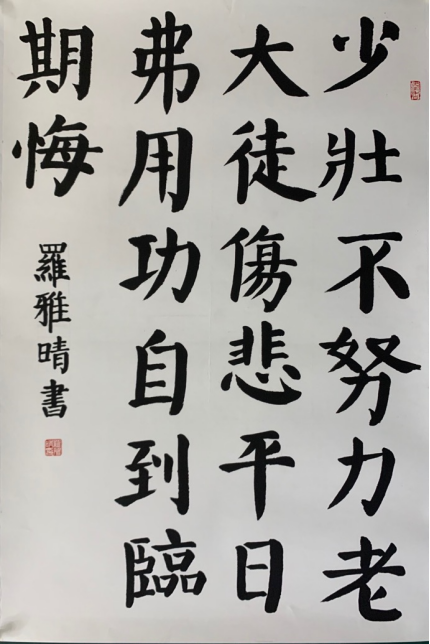 少壯不努力老
大徒傷悲平日
弗用功自到臨
期悔
羅雅晴書